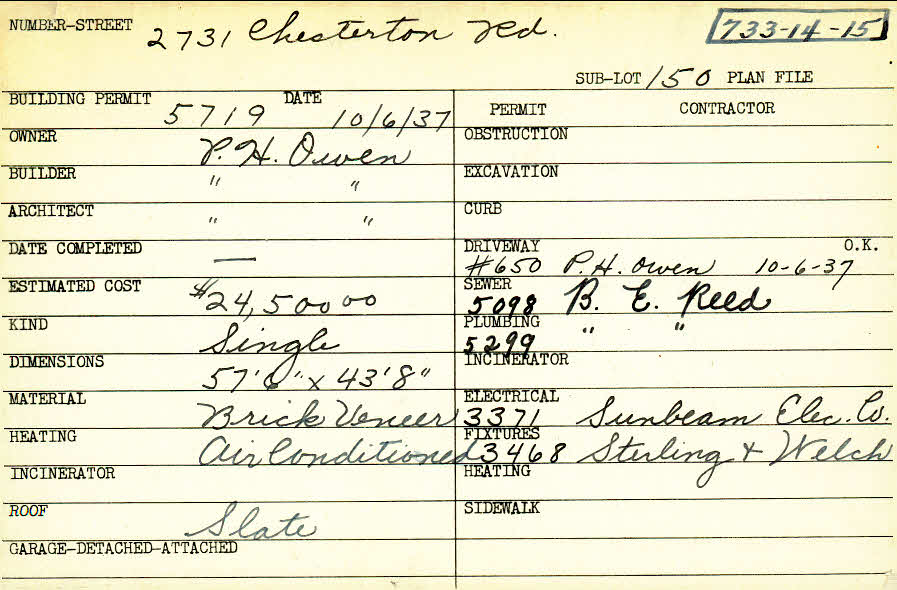 NUMBER-STREET 2731 Chesterton Rd. 733-14-15
SUB-LOT 150 PLAN FILE
BUILDING PERMIT 5719 DATE 10/6/37
OWNER P. H. Owen
BUILDER " "
ARCHITECT " "
DATE COMPLETED —
ESTIMATED COST $24,500 00
KIND Single
DIMENSIONS 57'6" x 43'8"
MATERIAL Brick Veneer
HEATING Air Conditioned
INCINERATOR
ROOF Slate
GARAGE-DETACHED-ATTACHED
PERMIT CONTRACTOR
OBSTRUCTION
EXCAVATION
CURB
DRIVEWAY O.K.
#650 P. H. Owen 10-6-37
SEWER
5098 B. E. Reed
PLUMBING
5299 " "
INCINERATOR
ELECTRICAL
3371 Sunbeam Elec. Co.
FIXTURES
3468 Sterling & Welch
HEATING
SIDEWALK